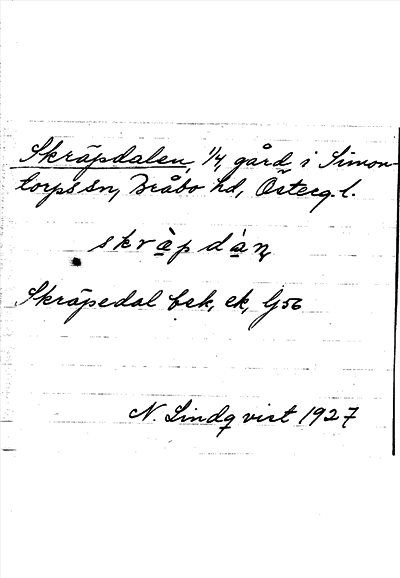 Skräpdalen, 1/4, gård i Simon-
torps sn, Bråbo hd, Österg. l.
skrä̀pdá̱n,
Skräpedal bek, ek, G56
N. Lindqvist 1927